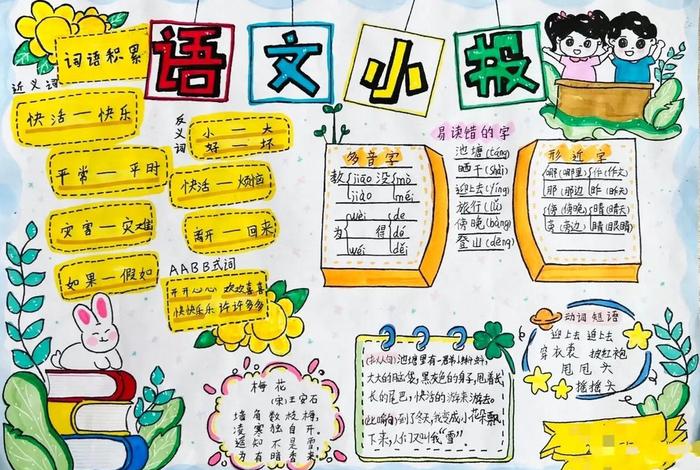 语文小报
词语积累
近义词
快活—快乐
平常—平时
灾害—灾难
如果—假如
反义词
小—大
好—坏
快活—烦恼
离开—回来
AABB式词
开开心心 欢欢喜喜
快快乐乐 许许多多
多音字
教 jiāo 没 mò
jiào méi
为 wéi 得 de
wèi dé
易读错的字
池塘(táng)
晒干(shài)
迎上去(yíng)
旅行(lǚ)
傍晚(bàng)
登山(dēng)
形近字
哪(哪里) 作(作文)
那(那边) 昨(昨天)
傍(傍晚) 晴(晴天)
旁(旁边) 睛(眼睛)
梅花
(宋)王安石
墙角数枝梅，
凌寒独自开。
遥知不是雪
为有暗香来
池塘里有一群小蝌蚪，
大大的脑袋，黑灰色的身子，甩着长
长的尾巴，快活的游来游去。
(比喻句)到了冬天，我变成小花朵飘
下来，人们又叫我“雪”
动词短语
迎上去 追上去
穿衣裳 披红袍
甩甩头
摇摇头